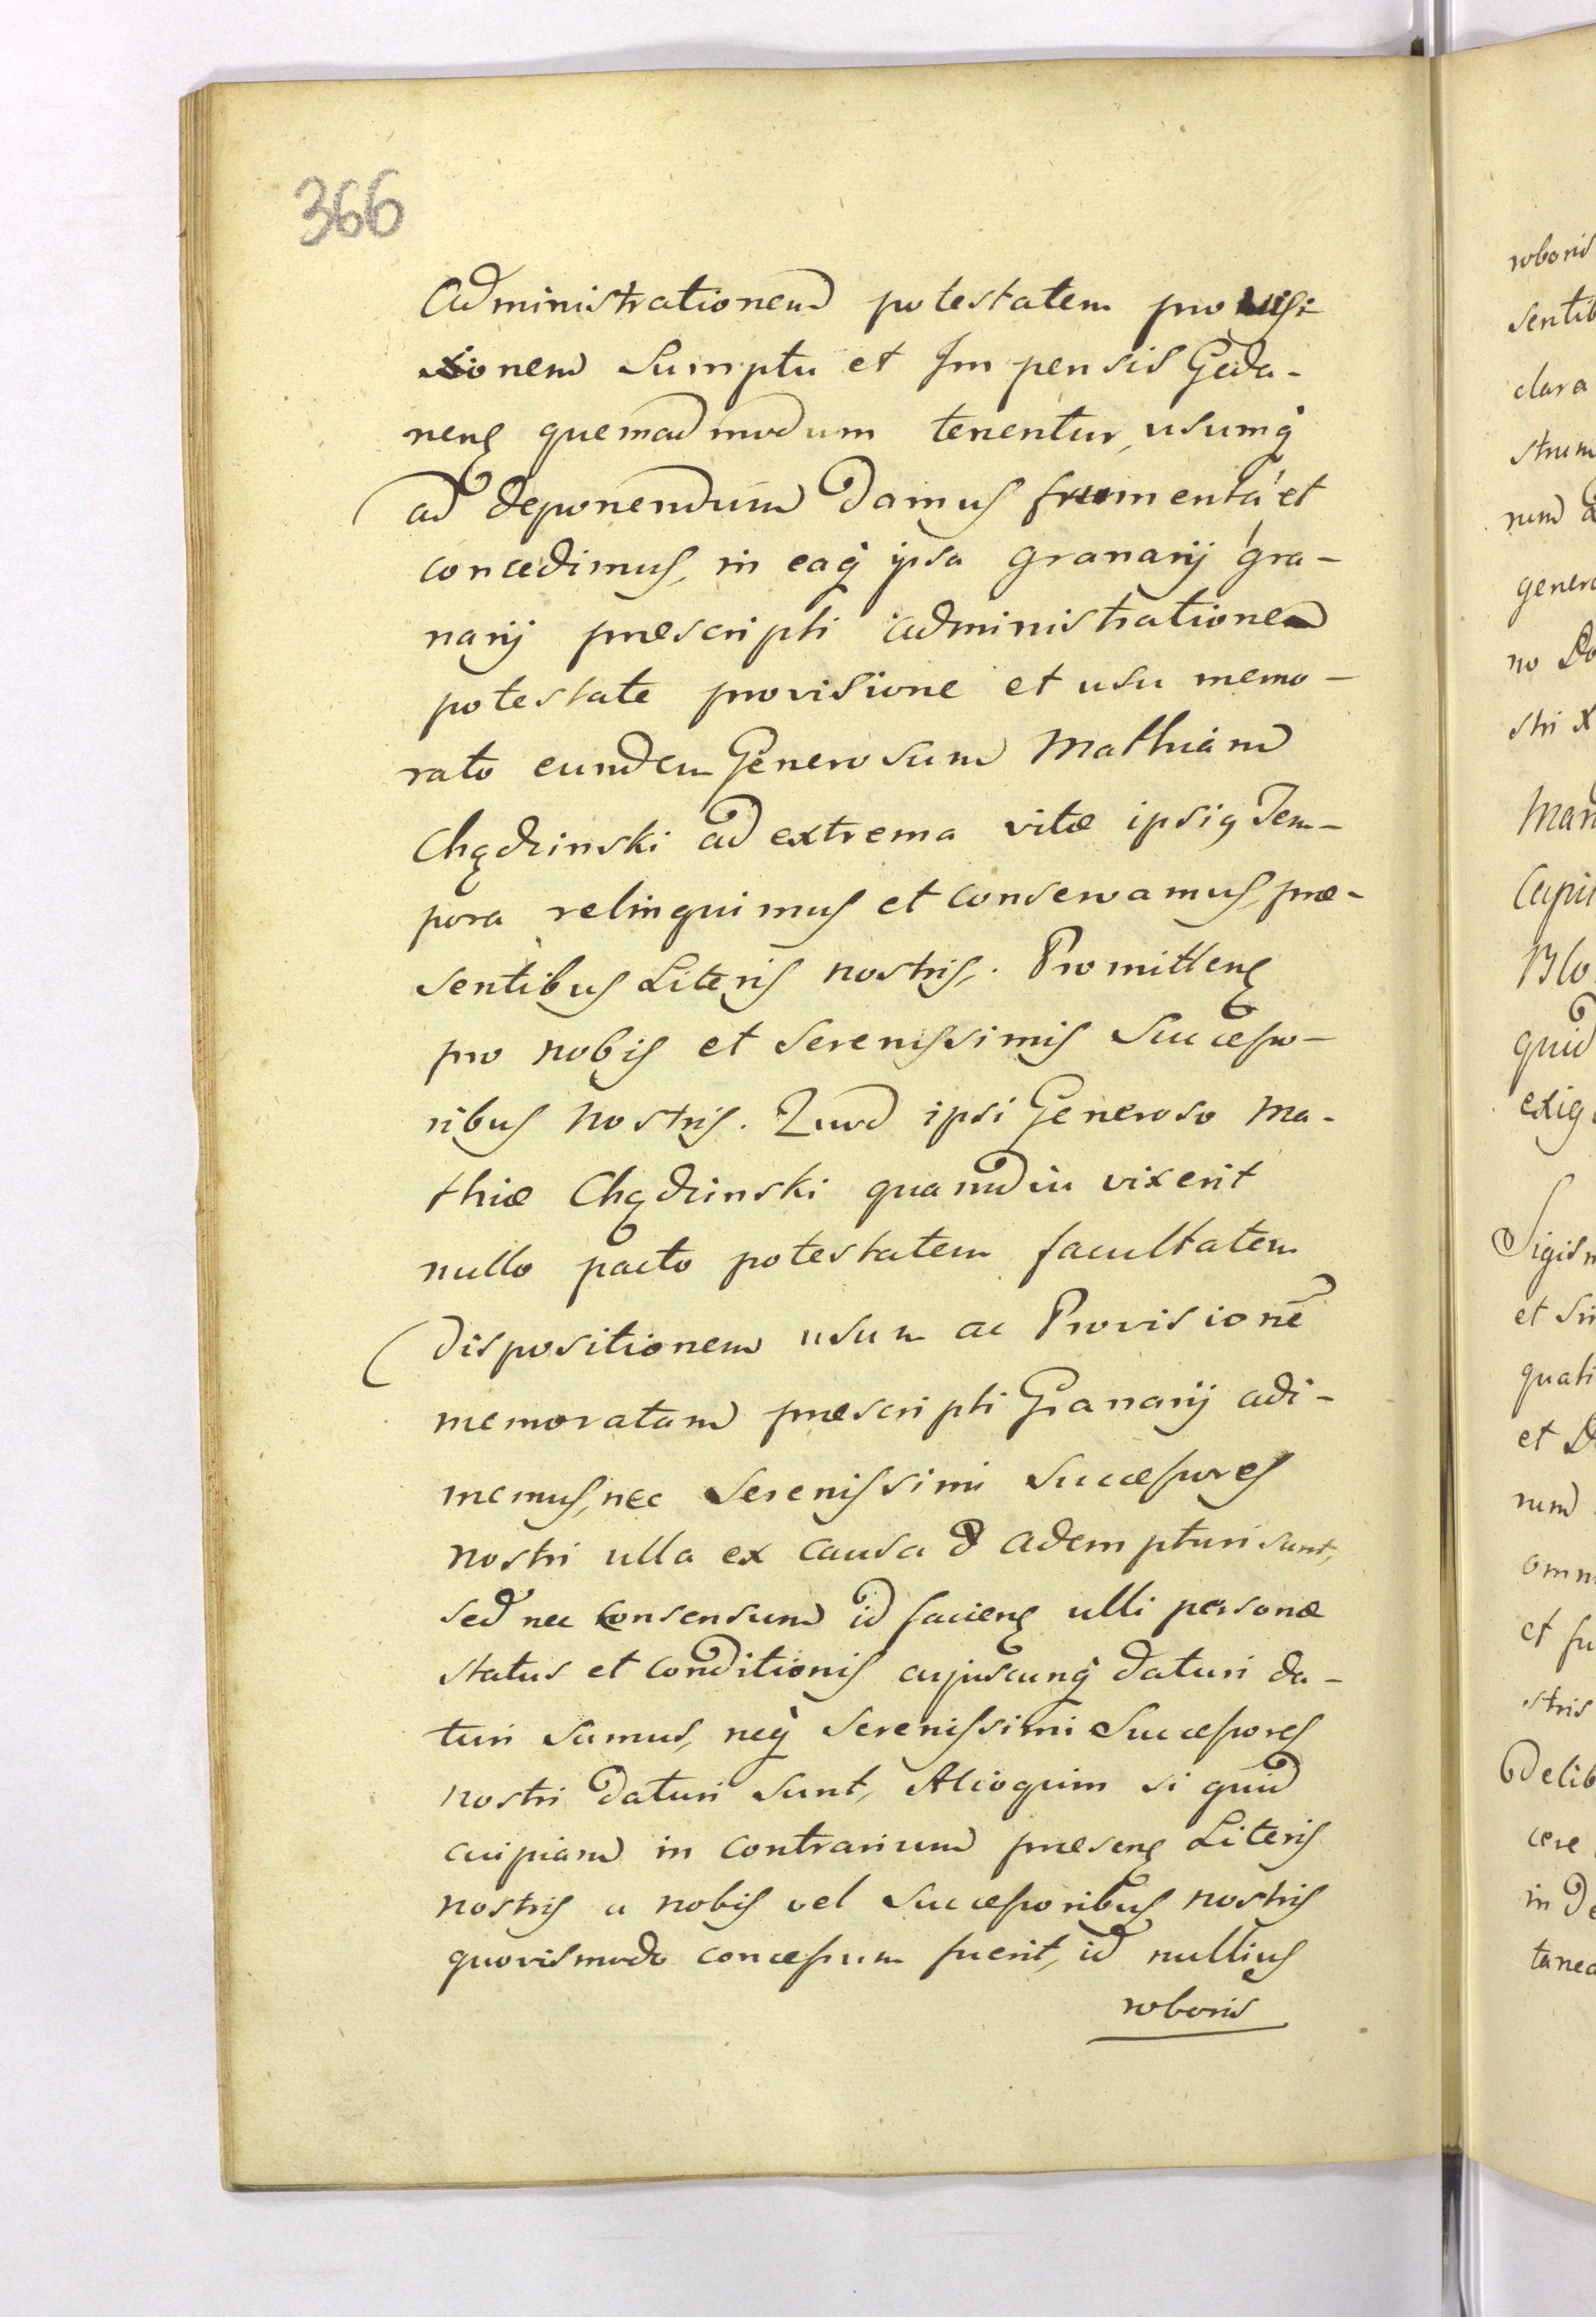 366
Administrationem potestatem provisi
sionem Sumptu et Impensis Geda-
nens quemadmodum tenentur, usumq
ad deponendum damus frumenta et
concedimus, in eaq ipsa granarij gra-
narij præscripti administrationem
potestate provisione et usu memo-
rato eundem Generosum Mathiam
Chądzinski ad extrema vitæ ipsig Tem-
pora relinquimus et conservamus, præ-
sentibus Literis nostris. Promittens
pro nobis et Serenissimis Successo-
ribus Nostris. Quod ipsi Generoso Ma-
thiæ Chądzinski quamdiu vixerit
nullo pacto potestatem facultatem
dispositionem usum ac Provisionē
memoratam præscripti Granarij adi-
memus, nec Serenissimi Successores
nostri ulla ex causa adempturi sunt,
sed nec consensum id faciens ulli personæ
status et conditionis cujuscunq daturi da-
turi sumus, neq Serenissimi Successores
nostri daturi sunt, Alioquim si quid
cuipiam in contrarium præsens Literis
nostris a nobis vel Successoribus nostris
quovismodo concessum fuerit, id nullius
roboris
roboris
sentib
clara
strum
rum
genero
no Do
stri X
Man
Capit
Blo
quid
exig
Sigism
et Sri
quati
et D
rum
omn
et fu
stris
delib
cere
in de
tanea